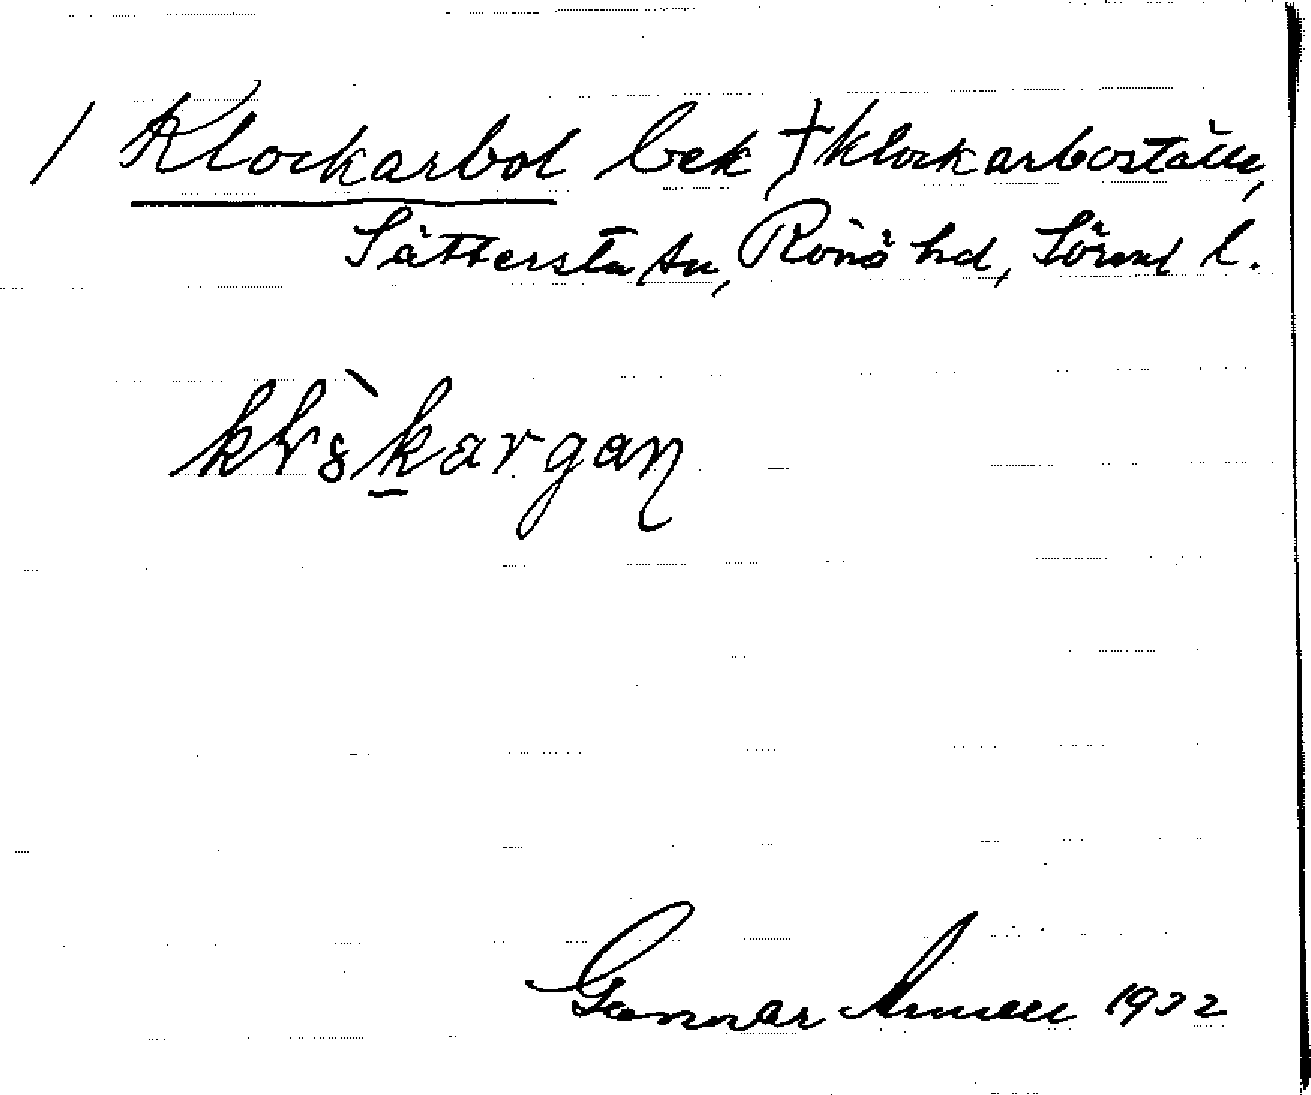 1 Klockarbol bek † Klockarboställe,
Sättersta sn, Rönö hd, Sörml l.
klò̀kargaɳ
Gunnar Arnell 1932